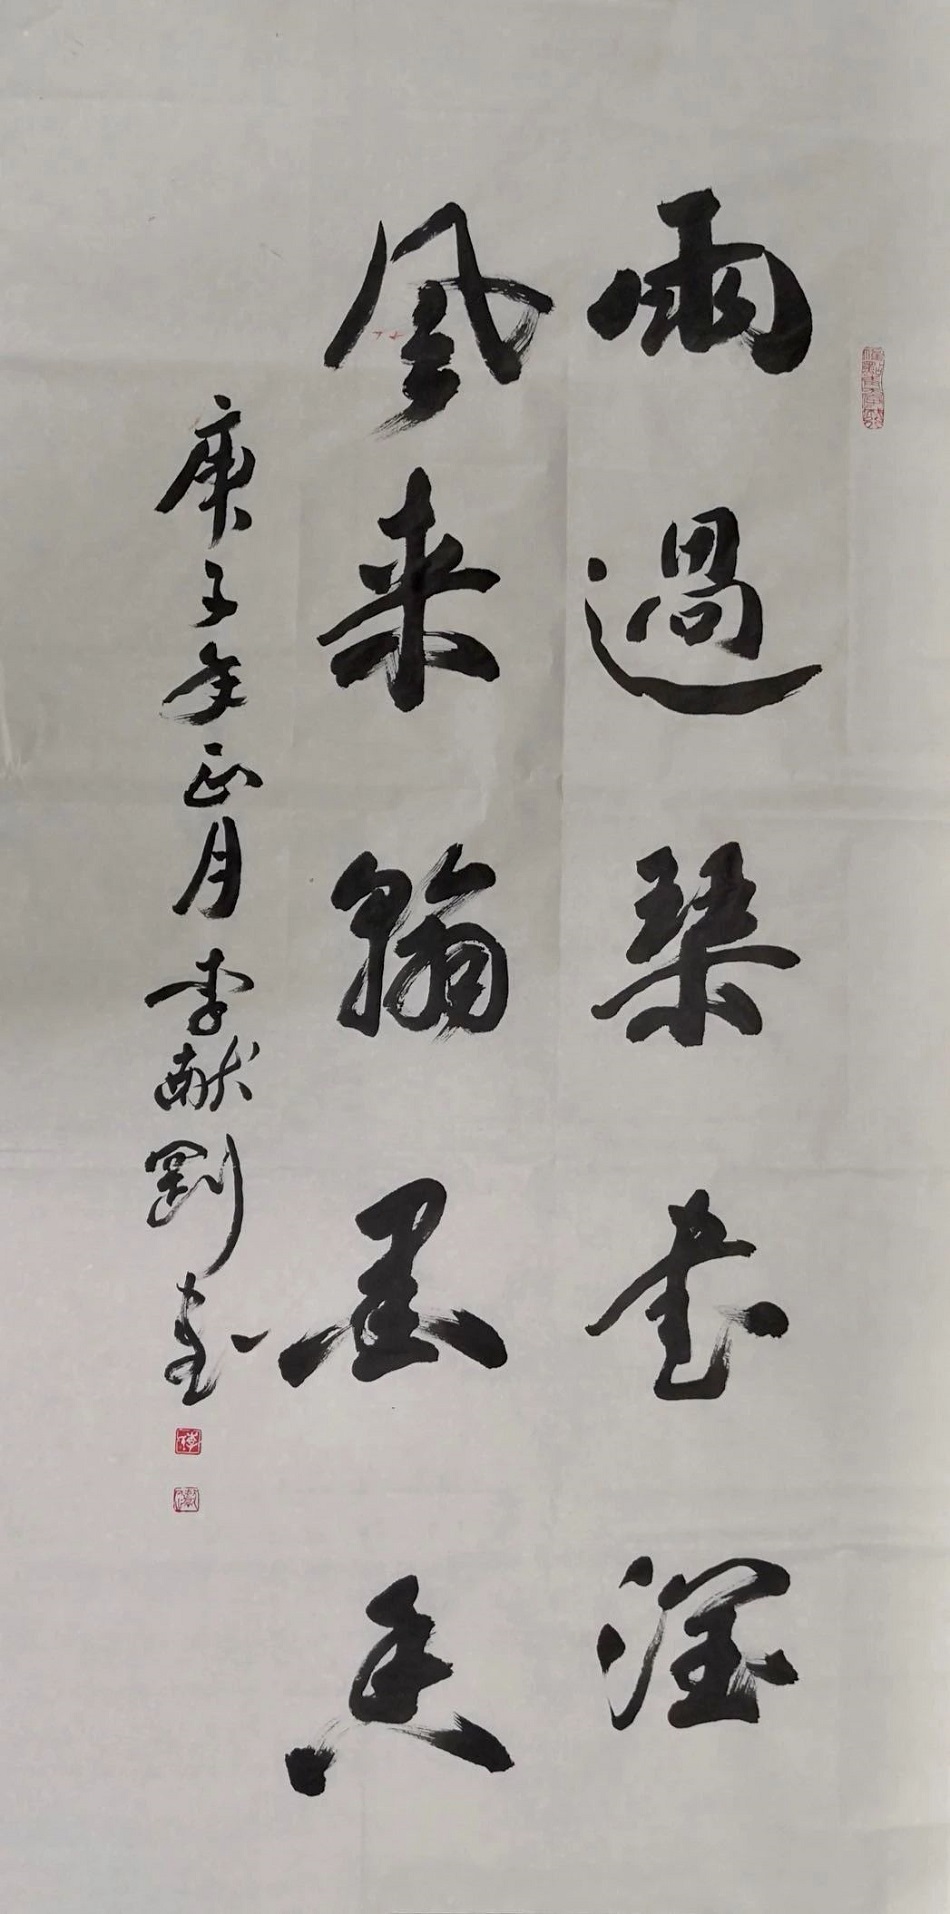 雨過琹書潤
風来翰墨香
庚子年正月李献剛書